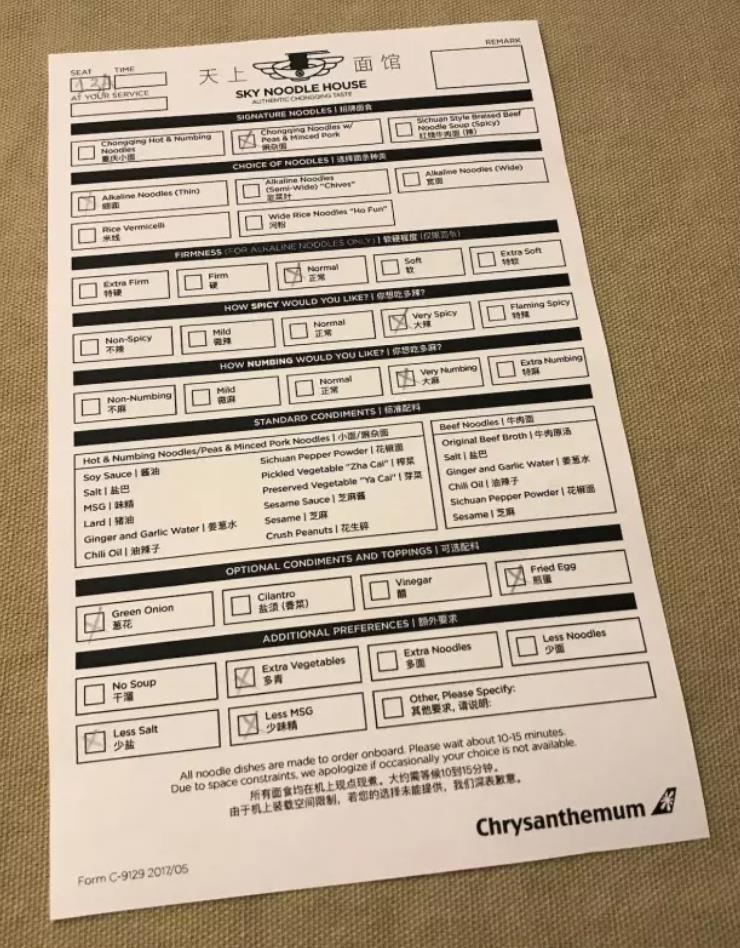 SEAT TIME
AT YOUR SERVICE
天上 面馆
SKY NOODLE HOUSE
AUTHENTIC CHONGQING TASTE
REMARK
SIGNATURE NOODLES | 招牌面食
Chongqing Hot & Numbing
Noodles
重庆小面
Chongqing Noodles w/
Peas & Minced Pork
豌杂面
Sichuan Style Braised Beef
Noodle Soup (Spicy)
红烧牛肉面 (辣)
CHOICE OF NOODLES | 选择面条种类
Alkaline Noodles (Thin)
细面
Alkaline Noodles
(Semi-Wide) "Chives"
韭菜叶
Alkaline Noodles (Wide)
宽面
Rice Vermicelli
米线
Wide Rice Noodles "Ho Fun"
河粉
FIRMNESS (FOR ALKALINE NOODLES ONLY) | 软硬程度 (仅限面条)
Extra Firm
特硬
Firm
硬
Normal
正常
Soft
软
Extra Soft
特软
HOW SPICY WOULD YOU LIKE? | 你想吃多辣?
Non-Spicy
不辣
Mild
微辣
Normal
正常
Very Spicy
大辣
Flaming Spicy
特辣
HOW NUMBING WOULD YOU LIKE? | 你想吃多麻?
Non-Numbing
不麻
Mild
微麻
Normal
正常
Very Numbing
大麻
Extra Numbing
特麻
STANDARD CONDIMENTS | 标准配料
Hot & Numbing Noodles/Peas & Minced Pork Noodles | 小面/豌杂面
Soy Sauce | 酱油
Salt | 盐巴
MSG | 味精
Lard | 猪油
Ginger and Garlic Water | 姜葱水
Chili Oil | 油辣子
Sichuan Pepper Powder | 花椒面
Pickled Vegetable "Zha Cai" | 榨菜
Preserved Vegetable "Ya Cai" | 芽菜
Sesame Sauce | 芝麻酱
Sesame | 芝麻
Crush Peanuts | 花生碎
Beef Noodles | 牛肉面
Original Beef Broth | 牛肉原汤
Salt | 盐巴
Ginger and Garlic Water | 姜葱水
Chili Oil | 油辣子
Sichuan Pepper Powder | 花椒面
Sesame | 芝麻
OPTIONAL CONDIMENTS AND TOPPINGS | 可选配料
Green Onion
葱花
Cilantro
盐须 (香菜)
Vinegar
醋
Fried Egg
煎蛋
ADDITIONAL PREFERENCES | 额外要求
No Soup
干溜
Extra Vegetables
多青
Extra Noodles
多面
Less Noodles
少面
Less Salt
少盐
Less MSG
少味精
Other, Please Specify:
其他要求, 请说明:
All noodle dishes are made to order onboard. Please wait about 10-15 minutes.
Due to space constraints, we apologize if occasionally your choice is not available.
所有面食均在机上现点现煮。大约需等候10到15分钟。
由于机上装载空间限制，若您的选择未能提供，我们深表歉意。
Chrysanthemum
Form C-9129 2017/05